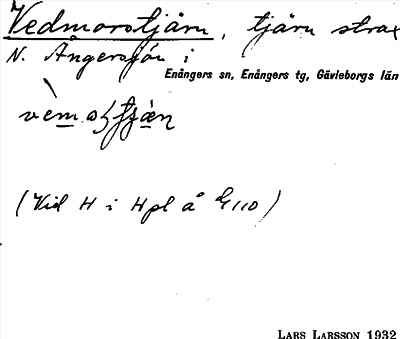 Vedmorstjärn, tjärn strax
N. Ångersjön i
Enångers sn, Enångers tg, Gävleborgs län
(Vid H i Hpl å G110)
LARS LARSSON 1932